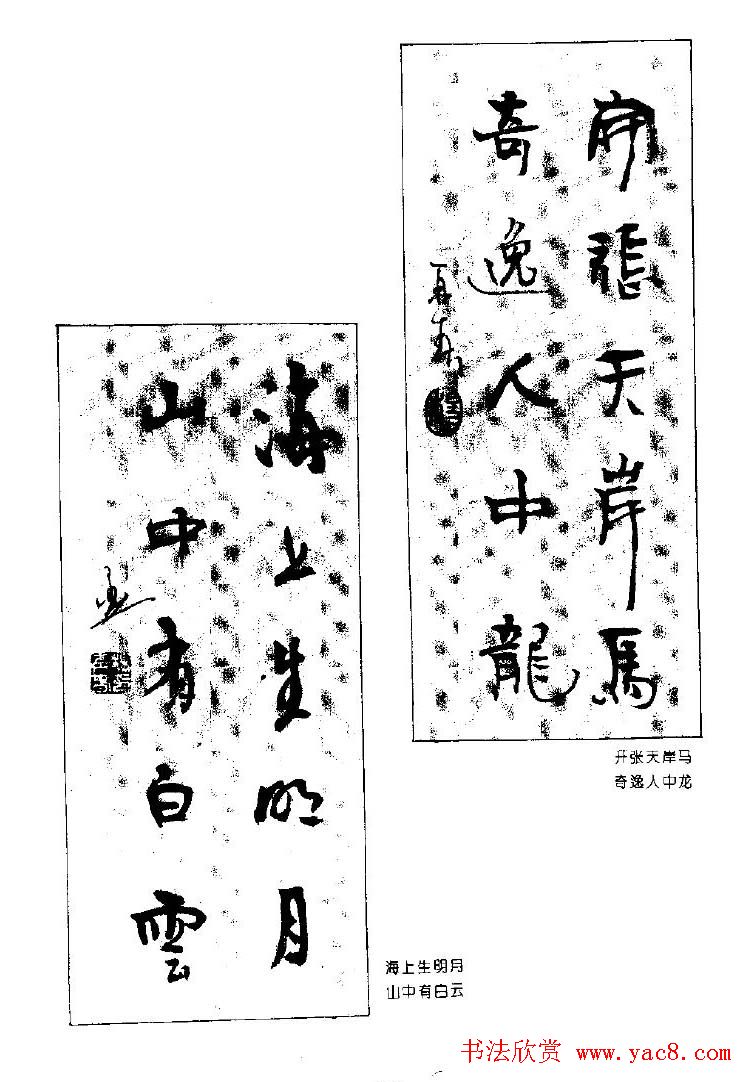 開張天岸馬
奇逸人中龍
开张天岸马
奇逸人中龙
海上生明月
山中有白雲
海上生明月
山中有白云
书法欣赏 www.yac8.com